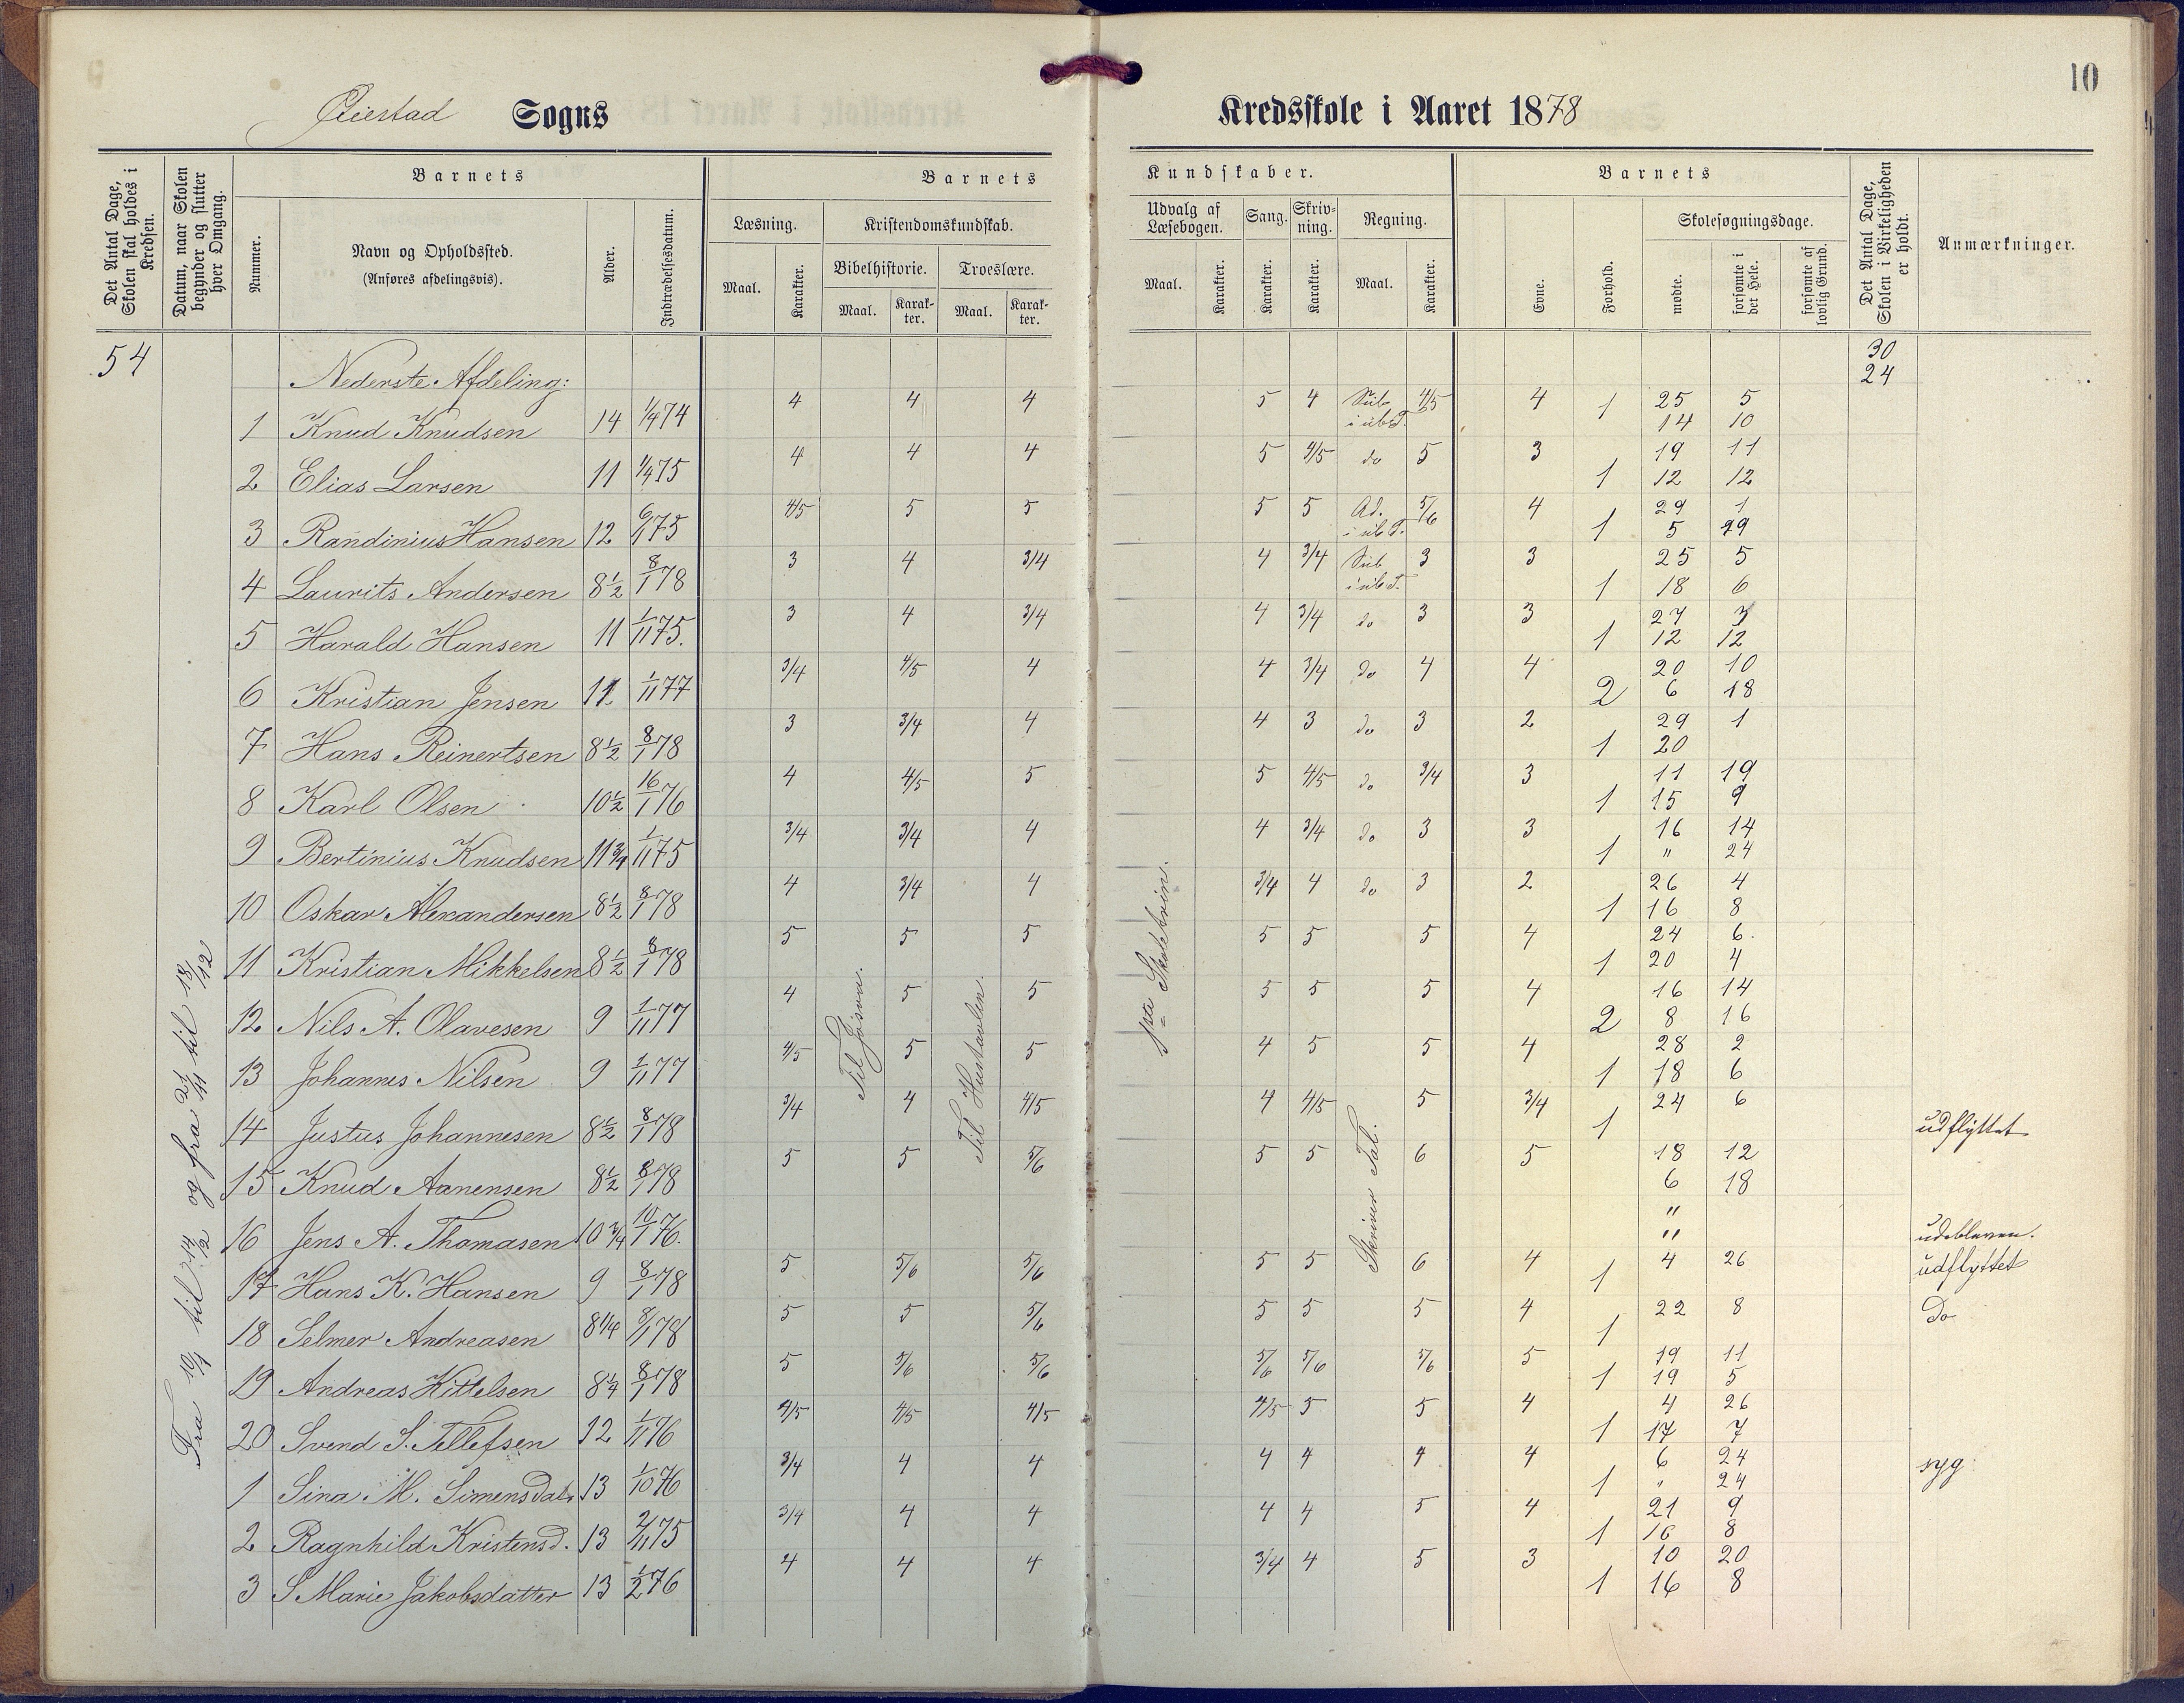 10
Øiestad Sogns Kredsskole i Aaret 1878
Det Antal Dage, Skolen skal holdes i Kredsen.
Datum, naar Skolen begynder og slutter hver Omgang.
Barnets
Nummer.
Navn og Opholdssted.
(Anføres afdelingsvis).
Alder.
Indtrædelsesdatum.
Barnets Kundskaber.
Læsning.
Maal. Karakter.
Kristendomskundskab.
Bibelhistorie. Troeslære.
Maal. Karakter. Maal. Karakter.
Udvalg af Læsebogen.
Maal. Karakter.
Sang. Karakter.
Skrivning. Karakter.
Regning.
Maal. Karakter.
Barnets
Evne. Forhold.
Skolesøgningsdage.
mødte. forsømte i det Hele. forsømte af lovlig Grund.
Det Antal Dage, Skolen i Virkeligheden er holdt.
Anmærkninger.
54 30
Nederste Afdeling: 24
1 Knud Knudsen 14 1/4 74 4 4 4 5 4 Sub i ub T. 4/5 4 1 25 5
14 10
2 Elias Larsen 11 1/4 75 4 4 4 5 4/5 do 5 3 1 19 11
12 12
3 Randinius Hansen 12 6/1 75 4/5 5 5 5 5 Ad. i ub T. 5/6 4 1 29 1
5 19
4 Laurits Andersen 8 1/2 8/1 78 3 4 3/4 4 3/4 Sub i ub T. 3 3 1 25 5
18 6
5 Harald Hansen 11 1/11 75. 3 4 3/4 4 3/4 do 3 3 1 27 3
12 12
6 Kristian Jensen 11 1/11 77 3/4 4/5 4 4 3/4 do 4 4 2 20 10
6 18
7 Hans Reinertsen 8 1/2 8/1 78 3 3/4 4 4 3 do 3 2 1 29 1
20
8 Karl Olsen 10 1/2 16/1 76 4 4/5 5 5 4/5 do 3/4 3 1 11 19
15 9
9 Bertinius Knudsen 11 3/4 1/11 75 3/4 3/4 4 4 3/4 do 3 3 1 16 14
" 24
10 Oskar Alexandersen 8 1/2 8/1 78 4 3/4 4 3/4 4 do 3 2 1 26 4
16 8
11 Kristian Mikkelsen 8 1/2 8/1 78 5 5 5 5 5 5 4 1 24 6
20 4
12 Nils A. Olavesen 9 1/11 77 4 5 5 5 5 5 4 2 16 14
8 16
13 Johannes Nilsen 9 1/11 77 4/5 5 5 4 5 5 4 1 28 2
18 6
14 Justus Johannesen 8 1/2 8/1 78 3/4 4 4/5 4 4/5 5 3/4 1 24 6 udflyttet
15 Knud Aanensen 8 1/2 8/1 78 5 5 5/6 5 5 6 5 18 12
6 18
16 Jens A. Thomasen 10 3/4 10/1 76. "
" udebleven.
17 Hans K. Hansen 9 8/1 78 5 5/6 5/6 5 5 6 4 1 4 26 udflyttet
18 Selmer Andreasen 8 1/4 8/1 78 5 5 5/6 5 5 5 4 1 22 8 Do
19 Andreas Kittelsen 8 1/4 8/1 78 5 5/6 5/6 5/6 5/6 5/6 5 1 19 11
19 5
20 Svend S. Tellefsen 12 1/11 76 4/5 4/5 4/5 4/5 5 5 4 1 4 26
17 7
1 Sina M. Simensdatr 13 1/10 76 3/4 4 4 4 4 4 4 1 6 24 syg
" 24
2 Ragnhild Kristensd. 13 2/11 75 3/4 4 4 4 4 5 4 1 21 9
16 8
3 S Marie Jakobsdatter 13 1/2 76 4 4 4 3/4 4 5 3 1 10 20
16 8
Fra 10/1 til 14/2 og fra 21/11 til 18/12
Til Josva.
Til Hustavlen
paa Skoletrin.
Skriver Tal.